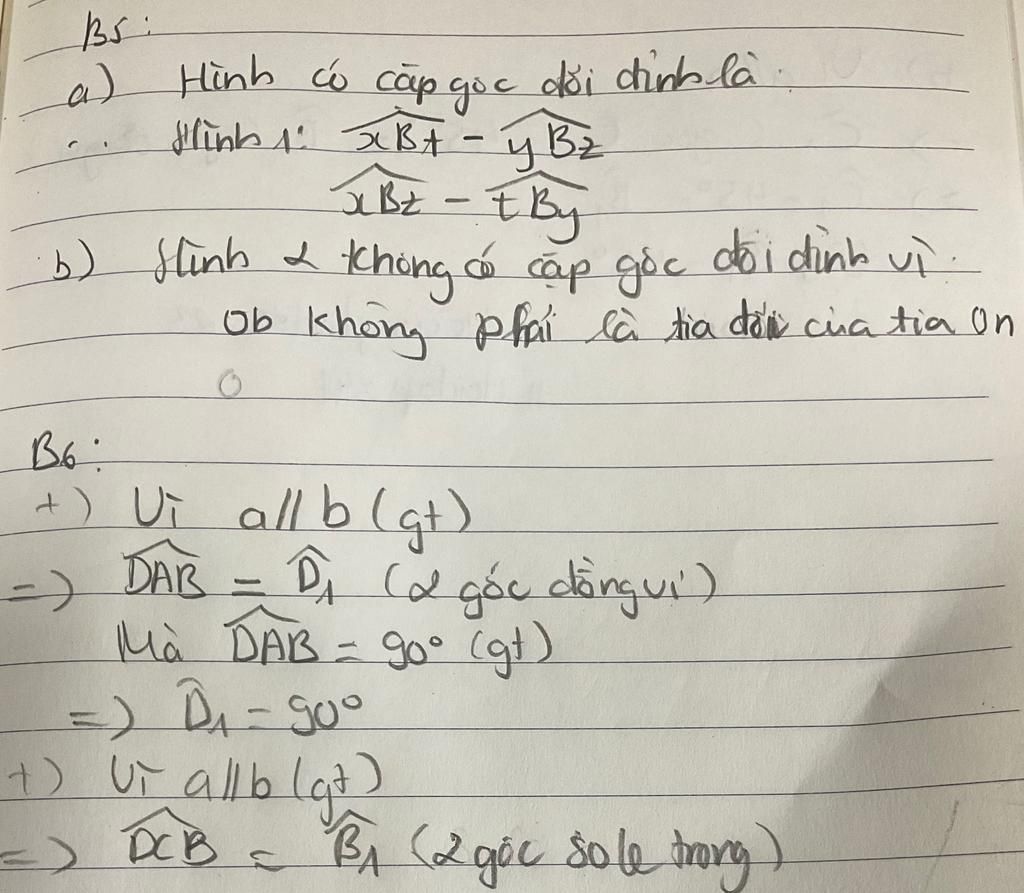 B5:
a) Hình có cặp góc đối đỉnh là.
Hình 1: xBt - yBz
xBz - tBy
b) Hình 2 không có cặp góc đối đỉnh vì.
Ob không phải là tia đối của tia On
B6:
+) Vì a//b (gt)
=> DAB = D1 (2 góc đồng vị)
Mà DAB = 90° (gt)
=> D1 = 90°
+) Vì a//b (gt)
=> DCB = B1 (2 góc sole trong)